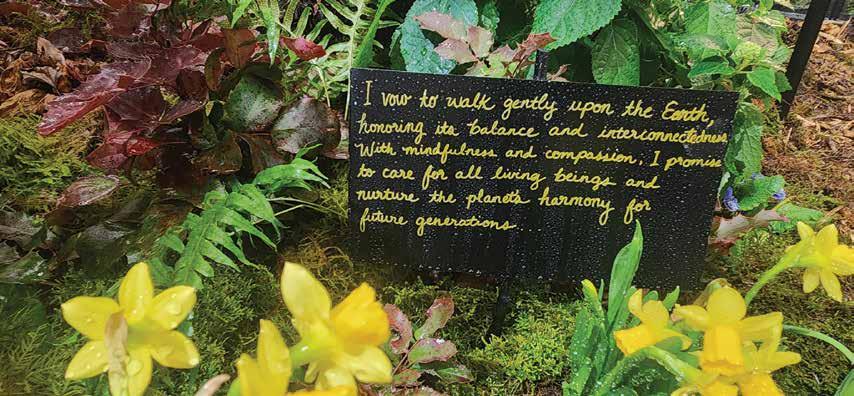 I vow to walk gently upon the Earth,
honoring its balance and interconnectedness.
With mindfulness and compassion, I promise
to care for all living beings and
nurture the planet's harmony for
future generations.